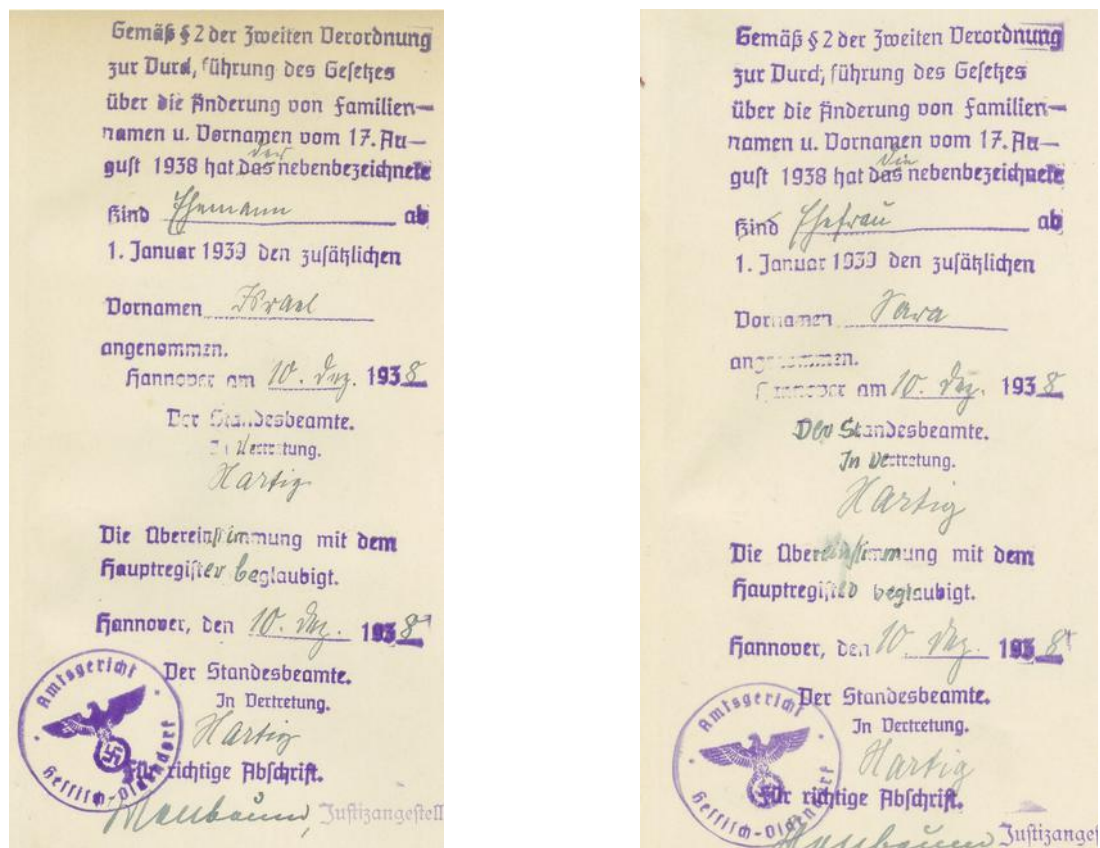 Gemäß § 2 der Zweiten Verordnung
zur Durchführung des Gesetzes
über die Änderung von Familien—
namen u. Vornamen vom 17. Au—
der
gust 1938 hat das nebenbezeichnete
Kind Ehemann ab
1. Januar 1939 den zusätzlichen
Vornamen Israel
angenommen.
Hannover am 10. Dez. 1938
Der Standesbeamte.
In Vertretung.
Hartig
Die Übereinstimmung mit dem
Hauptregister beglaubigt.
Hannover, den 10. Dez. 1938
Der Standesbeamte.
In Vertretung.
Hartig
Für richtige Abschrift.
Justizangestell
Amtsgericht
Hessisch-Oldendorf
Gemäß § 2 der Zweiten Verordnung
zur Durchführung des Gesetzes
über die Änderung von Familien—
namen u. Vornamen vom 17. Au—
die
gust 1938 hat das nebenbezeichnete
Kind Ehefrau ab
1. Januar 1939 den zusätzlichen
Vornamen Sara
angenommen.
Hannover am 10. Dez. 1938
Der Standesbeamte.
In Vertretung.
Hartig
Die Übereinstimmung mit dem
Hauptregister beglaubigt.
Hannover, den 10. Dez. 1938
Der Standesbeamte.
In Vertretung.
Hartig
Für richtige Abschrift.
Justizanges
Amtsgericht
Hessisch-Oldendorf